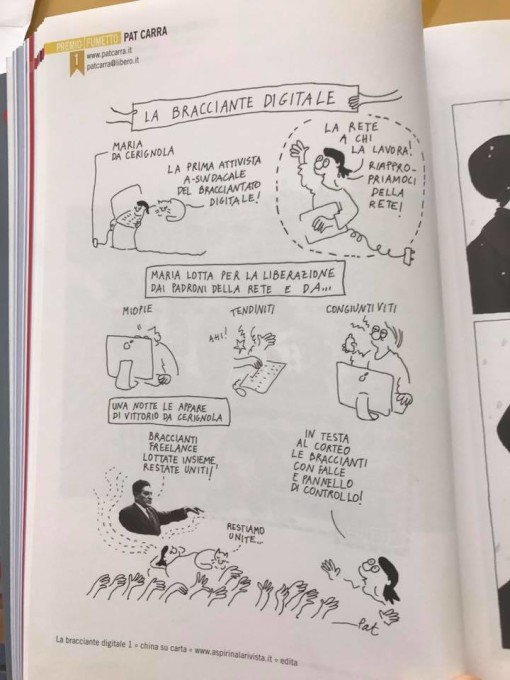 PREMIO FUMETTO PAT CARRA
1 www.patcarra.it
patcarra@libero.it
LA BRACCIANTE DIGITALE
MARIA
DA CERIGNOLA
LA PRIMA ATTIVISTA
A-SINDACALE
DEL BRACCIANTATO
DIGITALE!
LA RETE
A CHI
LA LAVORA!
RIAPPRO-
PRIAMOCI
DELLA
RETE!
MARIA LOTTA PER LA LIBERAZIONE
DAI PADRONI DELLA RETE E DA...
MIOPIE
TENDINITI
CONGIUNTIVITI
AHI!
UNA NOTTE LE APPARE
DI VITTORIO DA CERIGNOLA
BRACCIANTI
FREELANCE
LOTTATE INSIEME,
RESTATE UNITI!
IN TESTA
AL CORTEO
LE BRACCIANTI
CON FALCE
E PANNELLO
DI CONTROLLO!
RESTIAMO
UNITE...
Pat
La bracciante digitale 1 = china su carta = www.aspirinalarivista.it = edita